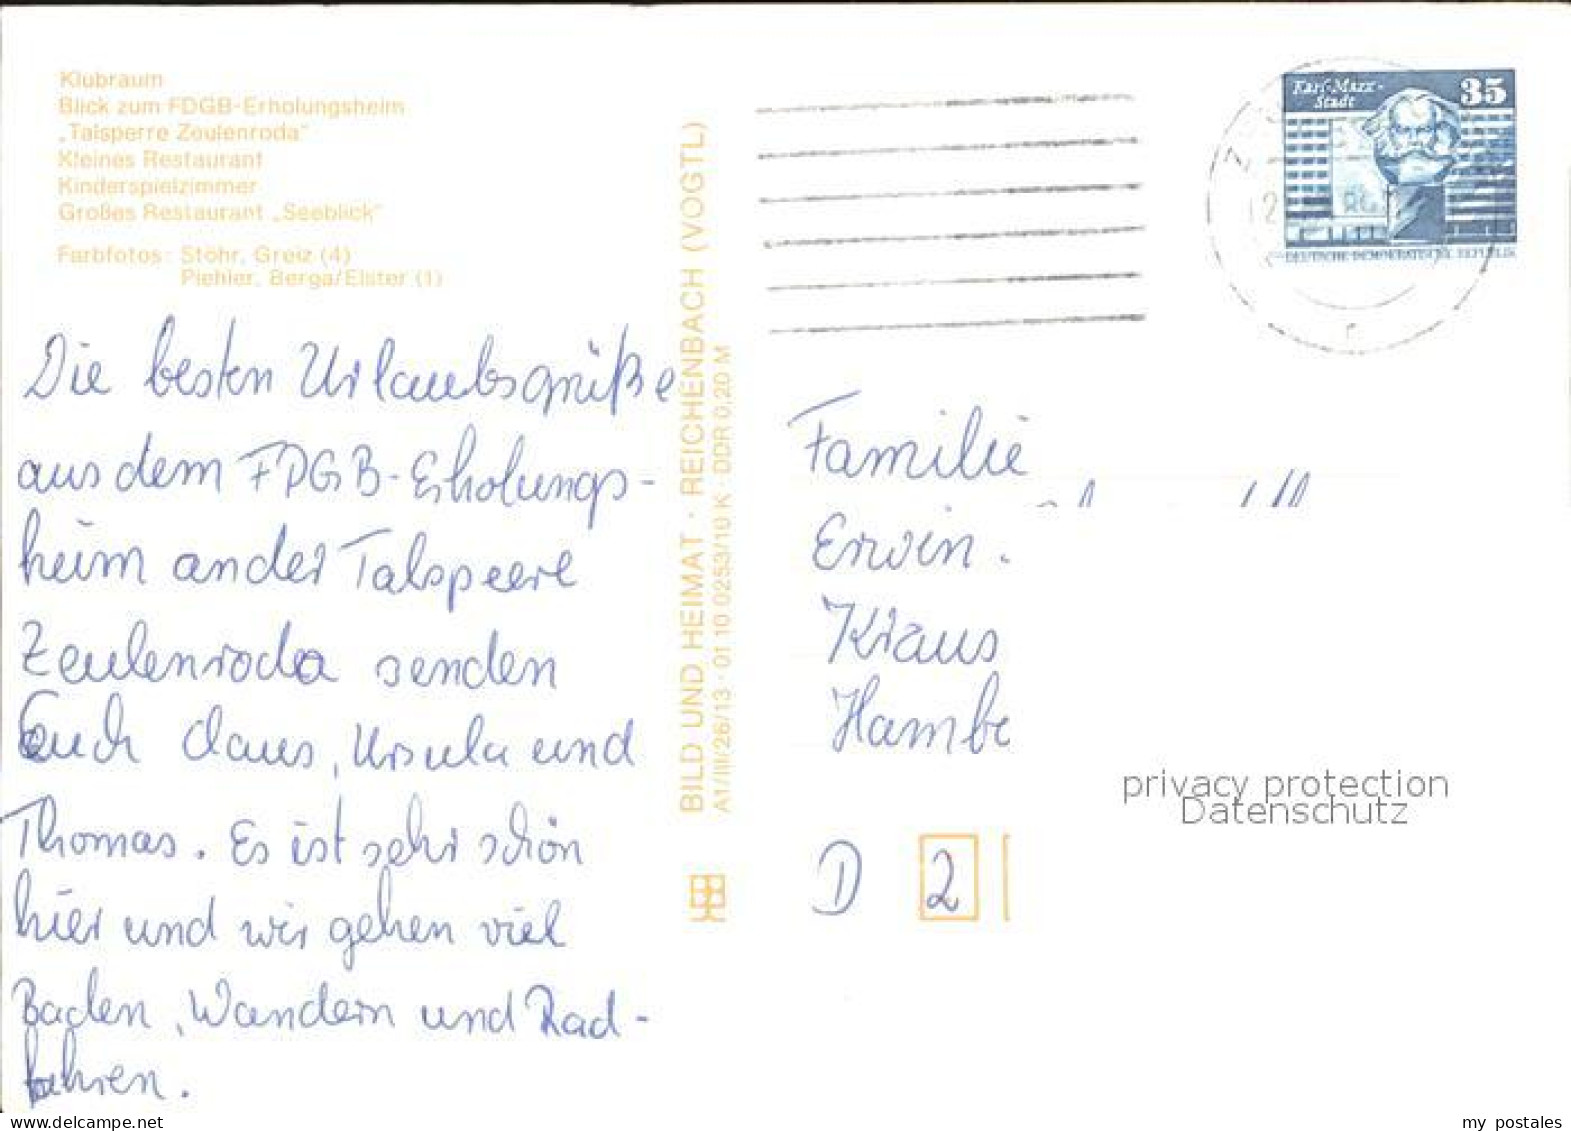 Klubraum
Blick zum FDGB-Erholungsheim
„Talsperre Zeulenroda"
Kleines Restaurant
Kinderspielzimmer
Großes Restaurant „Seeblick"
Farbfotos: Stöhr, Greiz (4)
Piehler, Berga/Elster (1)
Die besten Urlaubsgrüße
aus dem FDGB-Erholungs-
heim an der Talspeere
Zeulenroda senden
Euch Claus, Ursula und
Thomas. Es ist sehr schön
hier und wir gehen viel
Baden, Wandern und Rad-
fahren.
BILD UND HEIMAT · REICHENBACH (VOGTL)
A1/III/26/13 · 01 10 0253/10 K · DDR 0,20 M
Karl-Marx-
Stadt
35
DEUTSCHE DEMOKRATISCHE REPUBLIK
Familie
Erwin
Kraus
Hambe
D 2
privacy protection
Datenschutz
my postales